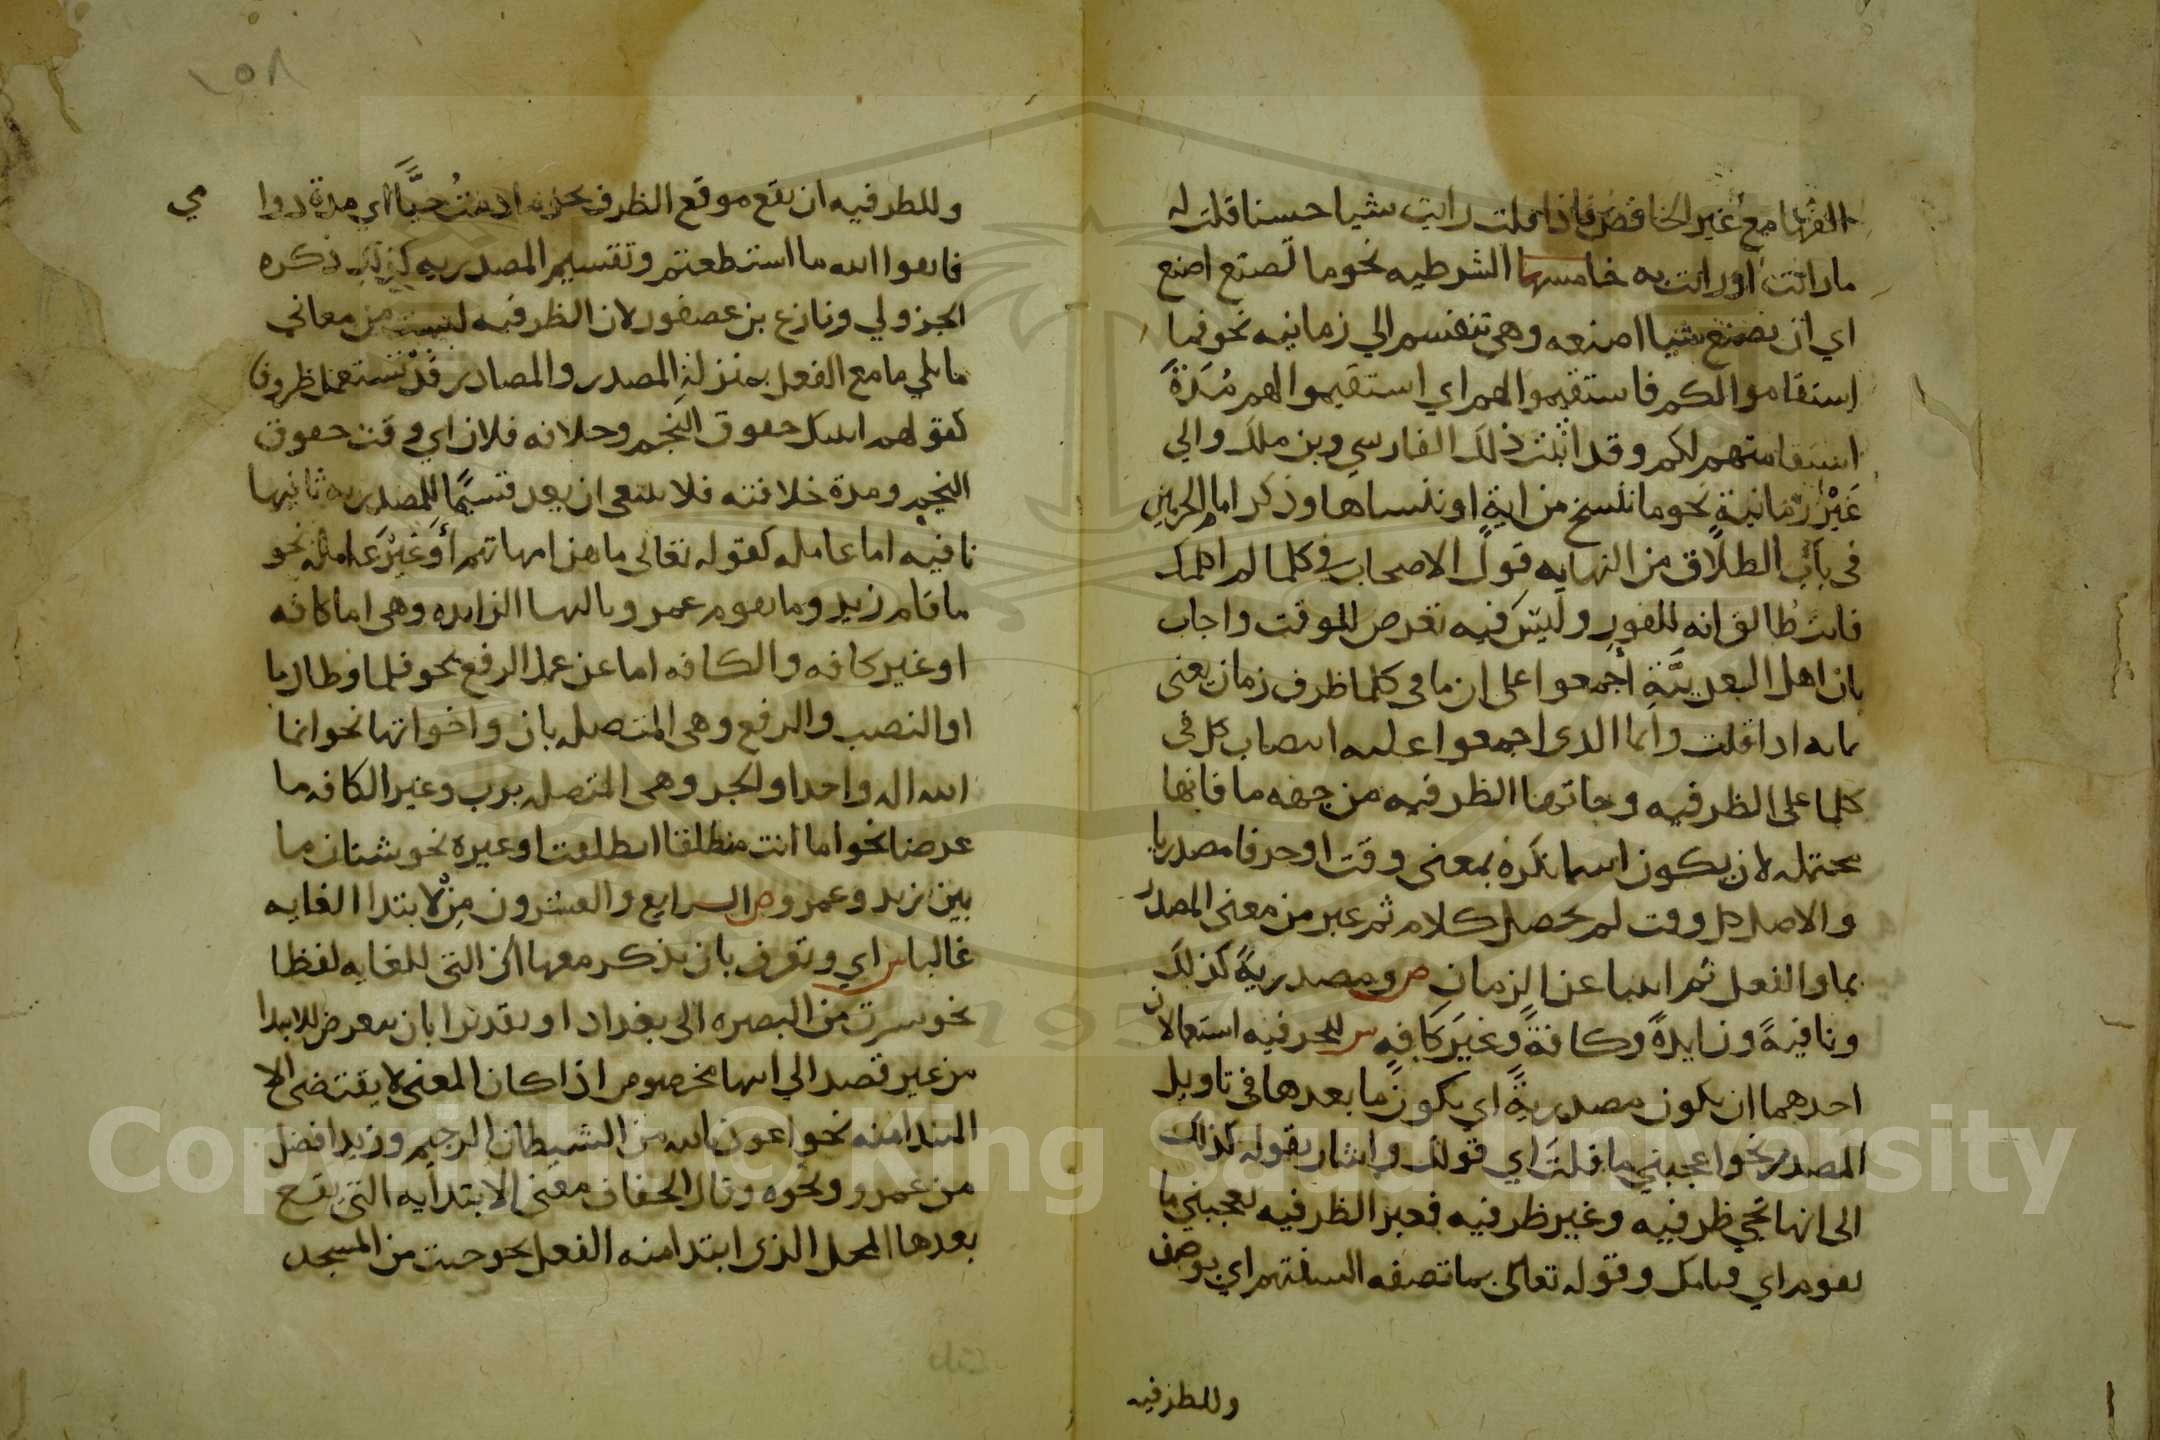 الفها مع غير الخافض فاذا قلت رايت شيا حسنا قلت له
ما رائت او رائت به خامسها الشرطيه نحو ما تصنع اصنع
اي ان تصنع شيا اصنعه وهي تنقسم الي زمانيه نحو فما
استقاموا لكم فاستقيموا لهم اي استقيموا لهم مُدّةَ
استقامتهم لكم وقد اثبت ذلك الفارسي وبن ملك والي
غَيْر زمانيةٍ نحو ما ننسخ من ايةٍ او ننساها وذكر امام الحرمين
في باب الطلاق من النهايه قول الاصحاب في كلما لم اطلقك
فانت طالق انه للفور وليسَ فيه تعرض للوقت واجاب
بان اهل العربيَّةِ اجمعوا على ان ما في كلما ظرف زمان يعنى
نيابه اذا قلت وانما الذى اجمعوا عليه انتصاب كل في
كلما على الظرفيه وجاتها الظرفيه من جهه ما فانها
محتمله لان يكون اسما نكرة بمعنى وقت او حرفا مصدريا
والاصل كل وقت لم يحصل كلام ثم عبر من معنى المصدر
بما والفعل ثم انيبا عن الزمان ص ومصدريةً كذلك
ونافيةً وزايدةً وكافةً وغيرَ كَافِهٍ س للحرفيه استعمالان
احدهما ان يكون مصدريةً اي يكون ما بعدها في تاويل
المصدر نحو اعجبني ما قلتَ اي قولك واشار بقوله كذلك
الى انها تجي ظرفيه وغير ظرفيه فغير الظرفيه يعجبني ما
تقوم اي قيامك وقوله تعالى بما تصفه السنتهم اي بوصف
وللظرفيه
١٥٨
وللظرفيه ان تقع موقع الظرف نحو ما دمتُ حيًّا اي مدة دوا مي
فاتقوا الله ما استطعتم وتقسيم المصدريه كذلك ذكره
الجزولي ونازع بن عصفور لان الظرفيه ليست من معاني
ما بل ما مع الفعل بمنزلةِ المصدر والمصادر قَدْ تستعمل ظروفا
كقولهم اتيتك خفوق النجم وخلافه فلان اي وقت خفوق
النجم ومدة خلافته فلا ينبغى ان يعد قسمًا للمصدريه ثانيها
نافيه اما عامله كقوله تعالى ما هن امهاتهم أو غَيْرَ عَامله نحو
ما قام زيد وما يقوم عمر وثالثها الزايده وهى اما كافه
او غير كافه والكافه اما عن عمل الرفع نحو قلما وطال ما
او النصب والرفع وهى المتصله بان واخواتها نحو انما
الله اله واحد او الجر وهى المتصله برب وغير الكافه ما
عوضا نحو اما انت منطلقا انطلقت او غيره نحو شتان ما
بين زيد وعمرو ص السرابع والعشرون مِنْ لابتدا الغايه
غالبا س اي وتعرف بان يذكر معها الى التى للغايه لفظا
نحو سرت من البصره الى بغداد او تقديرا بان يتعرض للابتدا
من غير قصد الي انتها مخصوص اذا كان المعنى لا يقتضى الا
المبتدا منه نحو اعوذ بالله من الشيطان الرجيم وزيد افضل
من عمرو ونحوه وقال الخفاف معنى الابتدايه التى يقع
بعدها المحل الذى ابتدا منه الفعل نحو جيت من المسجد
Copyright © King Saud University
1957